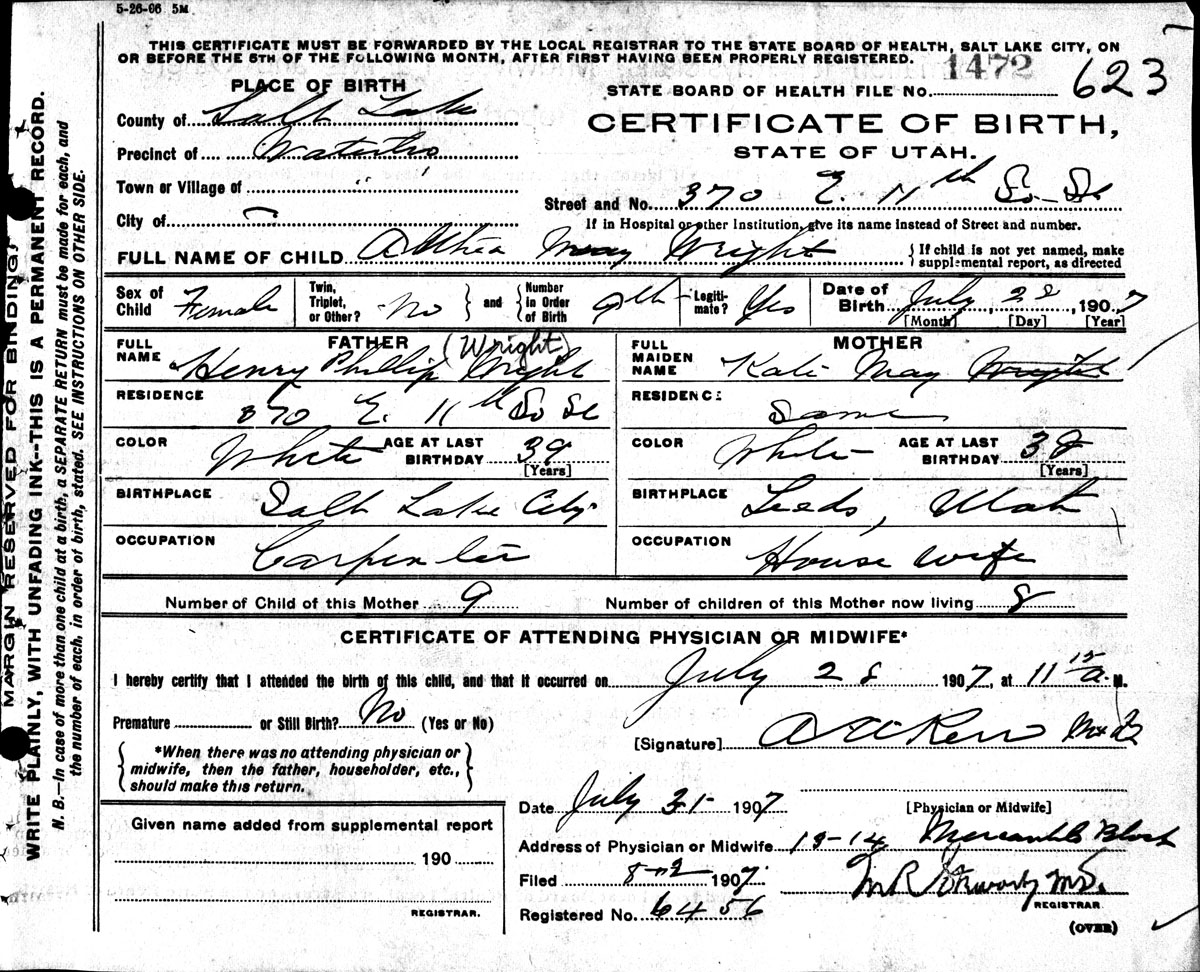 5-26-06 5M
THIS CERTIFICATE MUST BE FORWARDED BY THE LOCAL REGISTRAR TO THE STATE BOARD OF HEALTH, SALT LAKE CITY, ON
OR BEFORE THE 5TH OF THE FOLLOWING MONTH, AFTER FIRST HAVING BEEN PROPERLY REGISTERED.
1472
PLACE OF BIRTH
STATE BOARD OF HEALTH FILE No. 623
County of Salt Lake
CERTIFICATE OF BIRTH,
Precinct of Waterloo
STATE OF UTAH.
Town or Village of " "
Street and No. 370 E. 11th So. St
City of
If in Hospital or other Institution, give its name instead of Street and number.
FULL NAME OF CHILD Althea May Wright
{If child is not yet named, make
supplemental report, as directed
Sex of Child Female
Twin, Triplet, or Other? No } and { Number in Order of Birth 9th
Legiti-mate? Yes
Date of Birth July 28, 1907
[Month] [Day] [Year]
FATHER
FULL NAME Henry Phillip Wright (Wright)
MOTHER
FULL MAIDEN NAME Kate May Wright
RESIDENCE 370 E. 11th So St
RESIDENCE Same
COLOR White AGE AT LAST BIRTHDAY 39 [Years]
COLOR White AGE AT LAST BIRTHDAY 38 [Years]
BIRTHPLACE Salt Lake City
BIRTHPLACE Leeds, Utah
OCCUPATION Carpenter
OCCUPATION House wife
Number of Child of this Mother 9 Number of children of this Mother now living 8
CERTIFICATE OF ATTENDING PHYSICIAN OR MIDWIFE*
I hereby certify that I attended the birth of this child, and that it occurred on July 28 1907, at 11 15 a. M.
Premature or Still Birth? No (Yes or No)
[Signature]
{ *When there was no attending physician or
midwife, then the father, householder, etc.,
should make this return. }
Date July 31- 1907
[Physician or Midwife]
Given name added from supplemental report
190
REGISTRAR.
Address of Physician or Midwife 13-14 Mercantile Block
Filed 8-2 1907.
REGISTRAR
Registered No. 6456
(OVER)
MARGIN RESERVED FOR BINDING.
WRITE PLAINLY, WITH UNFADING INK--THIS IS A PERMANENT RECORD.
N. B.—In case of more than one child at a birth, a SEPARATE RETURN must be made for each, and
the number of each, in order of birth, stated. SEE INSTRUCTIONS ON OTHER SIDE.